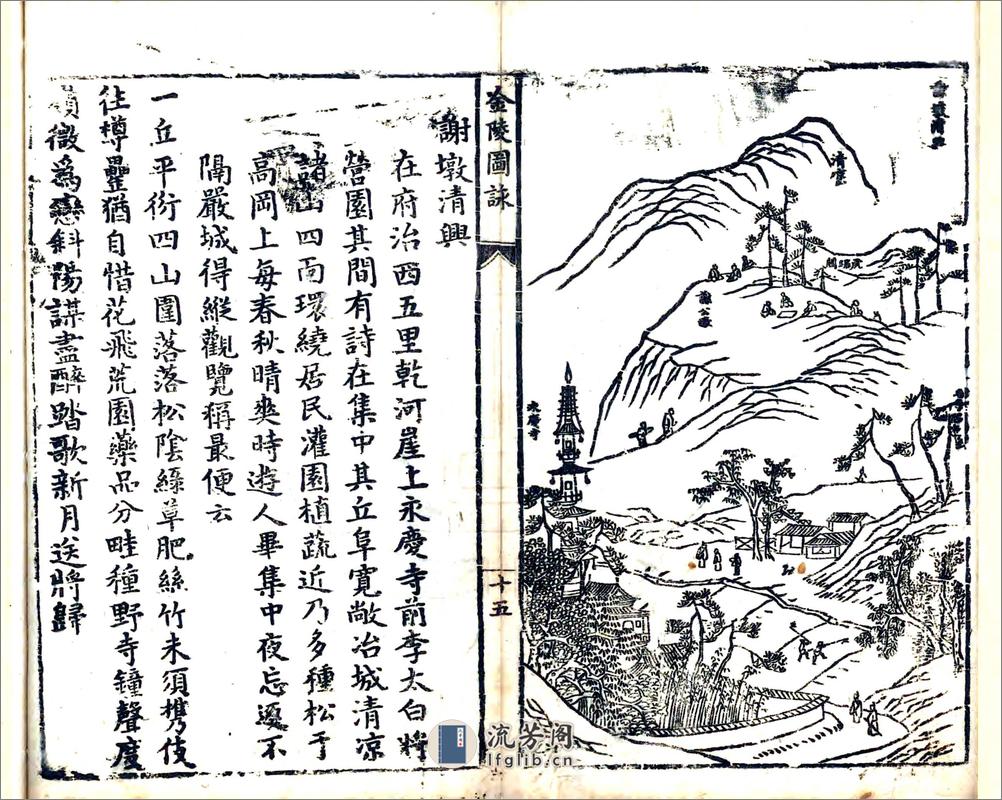 清興
清涼
虎踞關
謝公墩
永慶寺
金陵圖詠
十五
謝墩清興
在府治西五里乾河崖上永慶寺前李太白將
營園其間有詩在集中其丘阜寬敞冶城清凉
諸山四面環繞居民灌園植蔬近乃多種松于
高岡上每春秋晴爽時遊人畢集中夜忘返不
隔嚴城得縱觀覽稱最便云
一丘平衍四山圍落落松陰綠草肥絲竹未須携伎
往樽罍猶自惜花飛荒園藥品分畦種野寺鐘聲度
嶺微爲戀斜陽謀盡醉踏歌新月送將歸
流芳阁
lfglib.cn